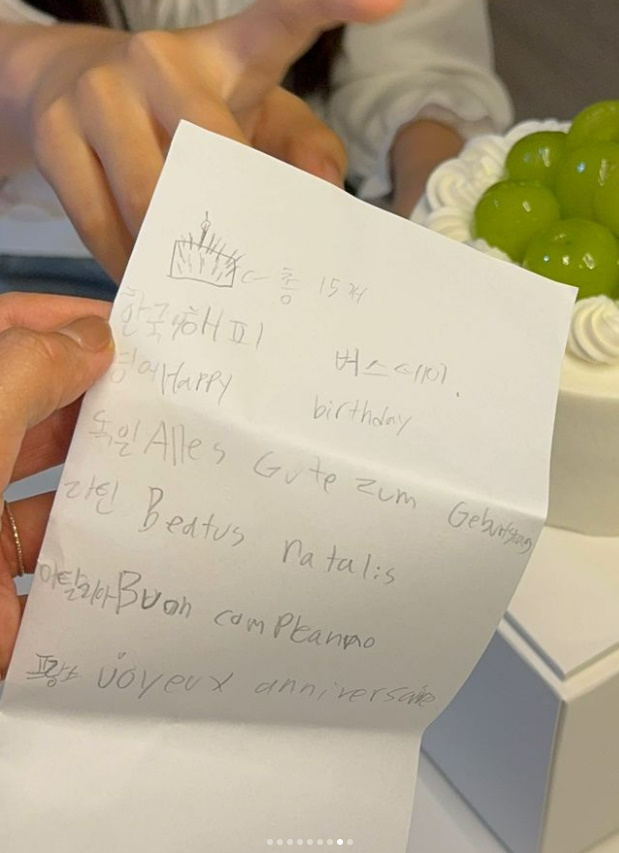 총 15
한국 해피 버스데이.
영어 Happy birthday
독일 Alles Gute zum Geburtstag
라틴 Beatus natalis
이탈리아 Buon compleanno
프랑스 Joyeux anniversaire